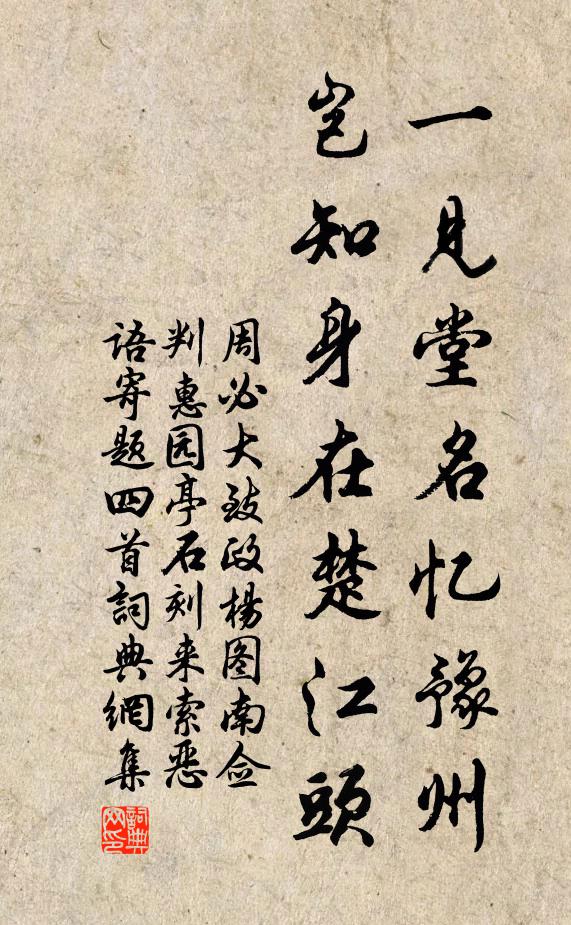 一见堂名忆豫州
岂知身在楚江头
周必大致政杨图南佥
判惠园亭石刻来索恶
语寄题四首词典網集
詞典网印